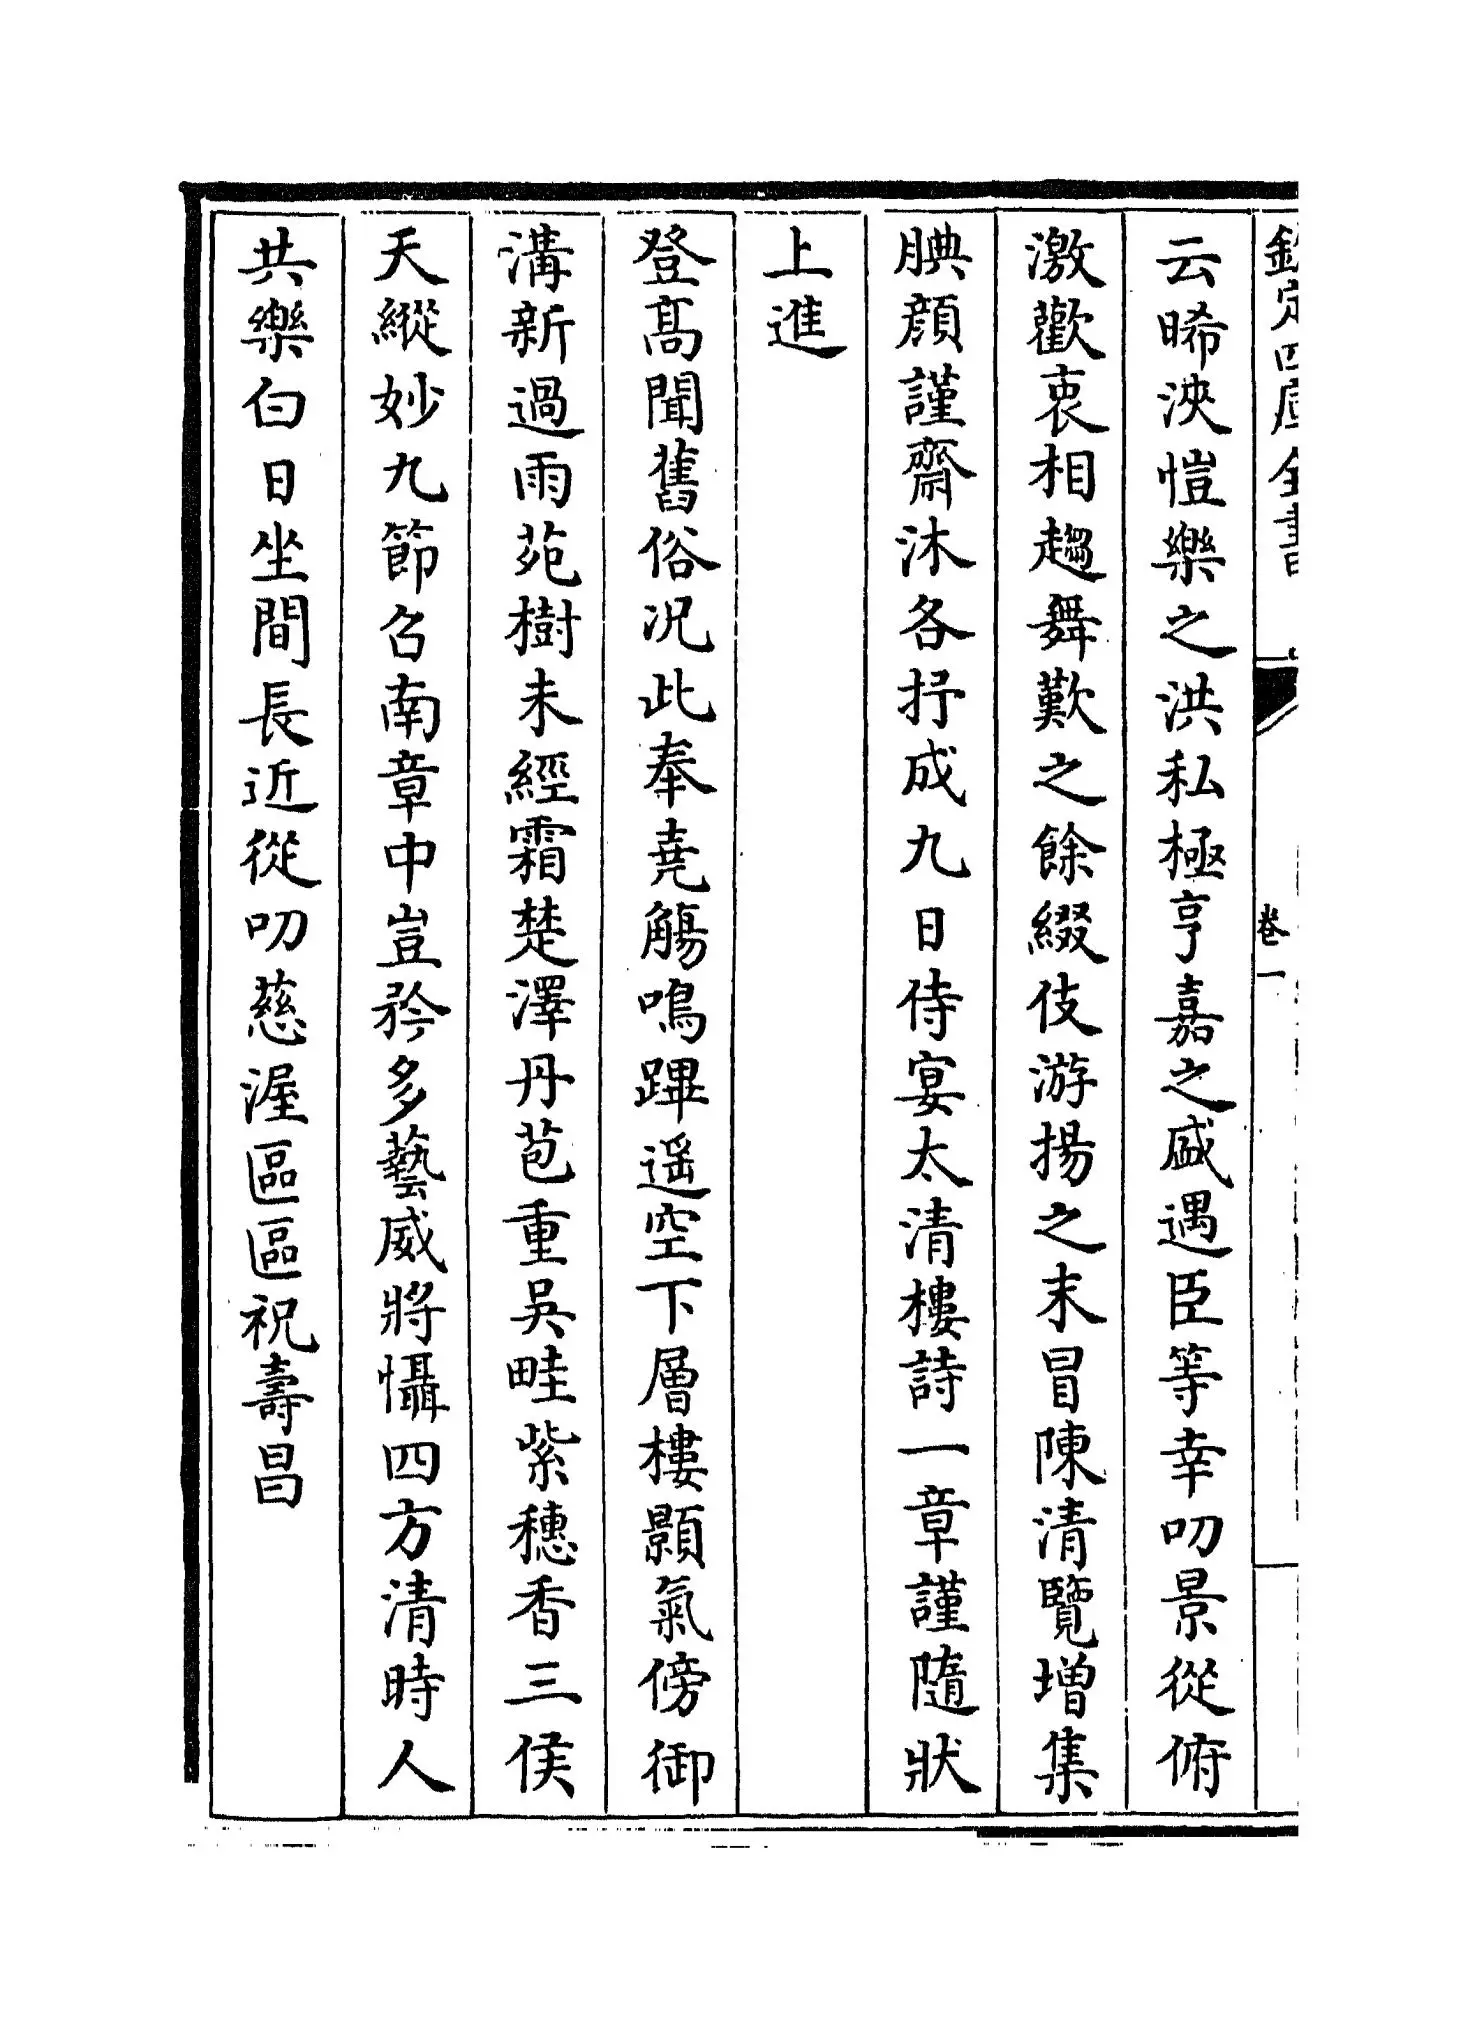 欽定四庫全書
卷一
云晞浹愷樂之洪私極亨嘉之盛遇臣等幸叨景從俯
激歡衷相趨舞歎之餘綴伎游揚之末冒陳清覽增集
腆顔謹齋沐各抒成九日侍宴太清樓詩一章謹隨狀
上進
登髙聞舊俗况此奉堯觴鳴蹕遥空下層樓顥氣傍御
溝新過雨苑樹未經霜楚澤丹苞重吳畦紫穗香三侯
天縱妙九節召南章中豈矜多藝威將懾四方清時人
共樂白日坐間長近從叨慈渥區區祝壽昌